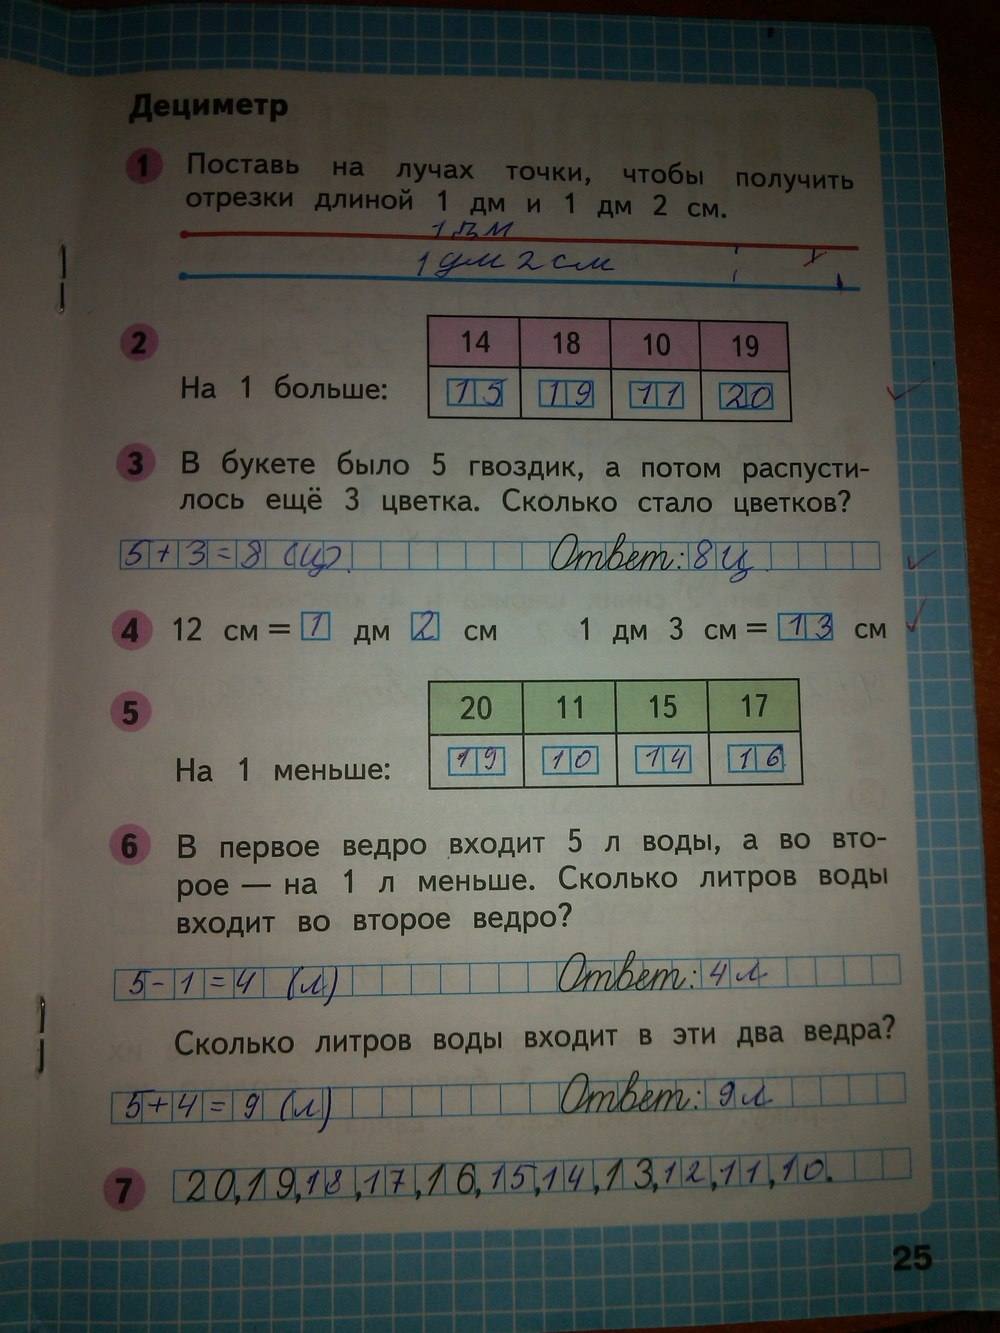 Дециметр
1 Поставь на лучах точки, чтобы получить
отрезки длиной 1 дм и 1 дм 2 см.
1 дм
1 дм 2 см
2
14 18 10 19
На 1 больше: 15 19 11 20
3 В букете было 5 гвоздик, а потом распусти-
лось ещё 3 цветка. Сколько стало цветков?
5+3=8 (ц). Ответ: 8 ц.
4 12 см = 1 дм 2 см 1 дм 3 см = 13 см
5
20 11 15 17
На 1 меньше: 19 10 14 16
6 В первое ведро входит 5 л воды, а во вто-
рое — на 1 л меньше. Сколько литров воды
входит во второе ведро?
5-1=4 (л) Ответ: 4 л
Сколько литров воды входит в эти два ведра?
5+4=9 (л) Ответ: 9 л
7 20,19,18,17,16,15,14,13,12,11,10.
25